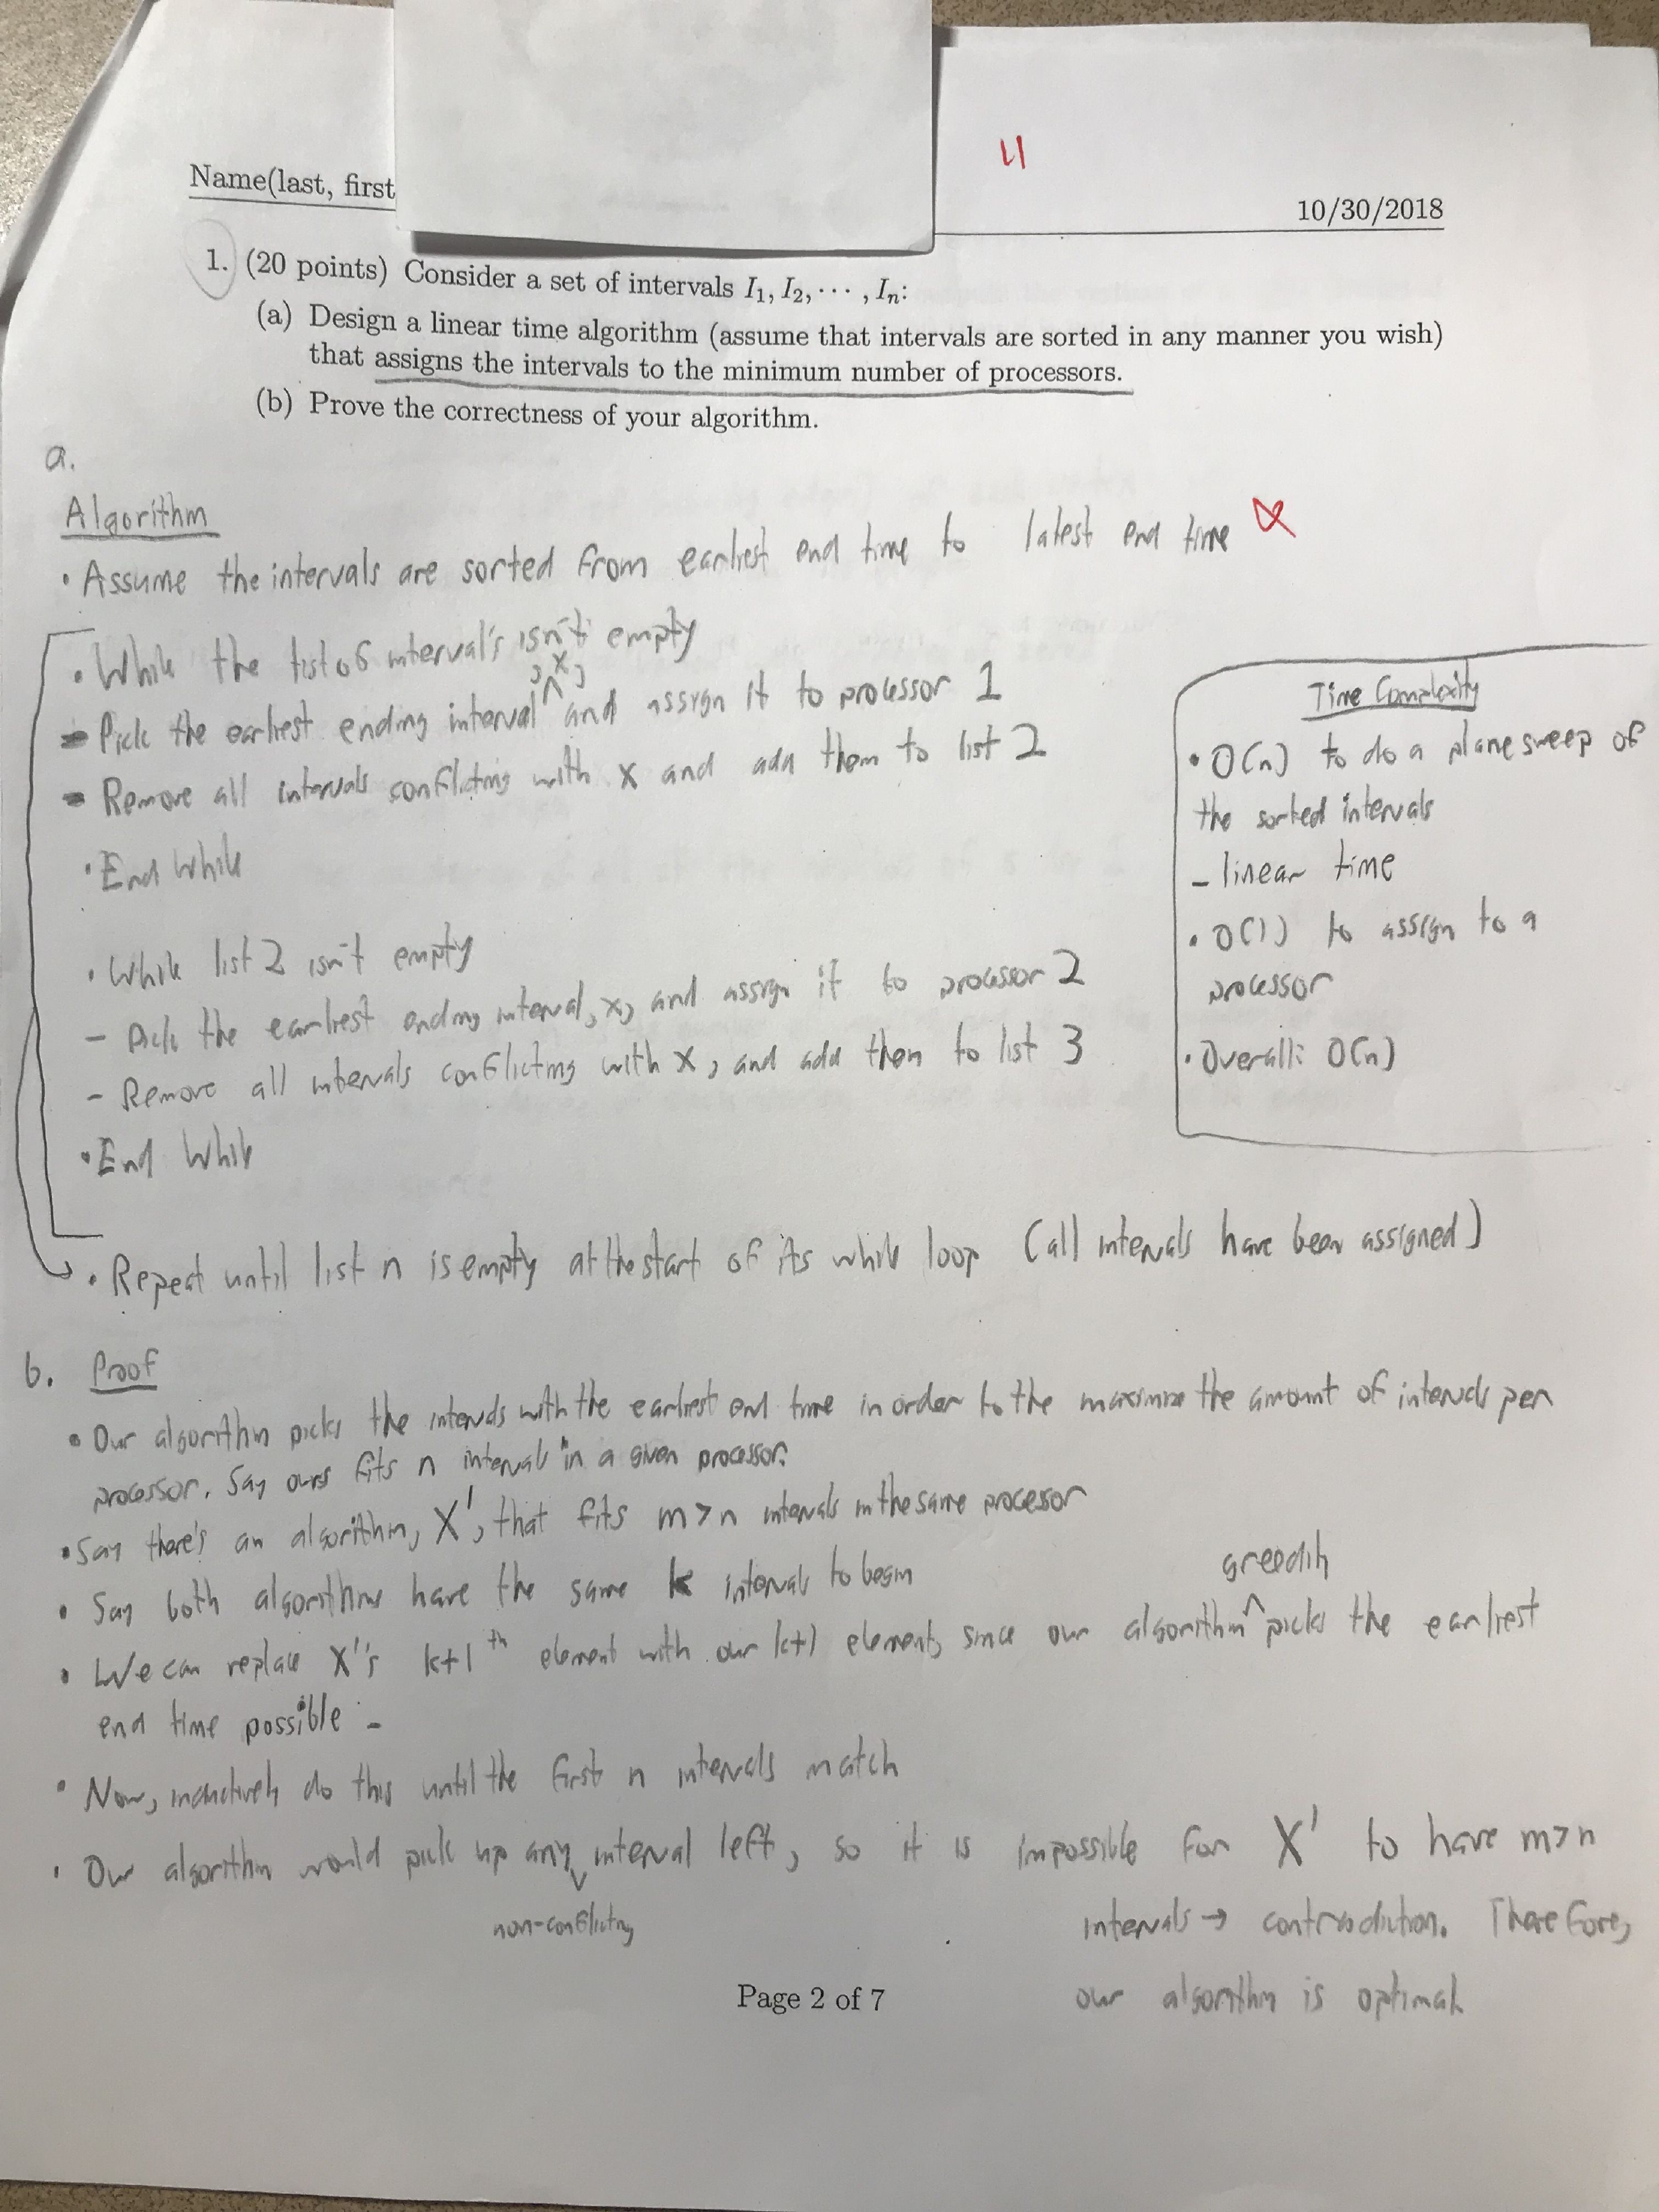 4
Name(last, first
10/30/2018
1. (20 points) Consider a set of intervals I1, I2, ··· , In:
(a) Design a linear time algorithm (assume that intervals are sorted in any manner you wish)
that assigns the intervals to the minimum number of processors.
(b) Prove the correctness of your algorithm.
a.
Algorithm
• Assume the intervals are sorted from earliest end time to latest end time
• While the list of interval's isn't empty
- Pick the earliest ending interval, x, and assign it to processor 1
- Remove all intervals conflicting with x and add them to list 2
• End While
• While list 2 isn't empty
- Pick the earliest ending interval, x, and assign it to processor 2
- Remove all intervals conflicting with x, and add them to list 3
• End While
• Repeat until list n is empty at the start of its while loop (all intervals have been assigned)
Time Complexity
• O(n) to do a plane sweep of
the sorted intervals
- linear time
• O(1) to assign to a
processor
• Overall: O(n)
b. Proof
• Our algorithm picks the intervals with the earliest end time in order to the maximize the amount of intervals per
processor. Say ours fits n intervals in a given processor.
• Say there's an algorithm, X', that fits m>n intervals in the same processor
• Say both algorithms have the same k intervals to begin
• We can replace X''s k+1th element with our k+1 element, since our algorithm greedily picks the earliest
end time possible -
• Now, inductively do this until the first n intervals match
• Our algorithm would pick up any non-conflicting interval left, so it is impossible for X' to have m>n
intervals → contradiction. Therefore,
our algorithm is optimal
Page 2 of 7